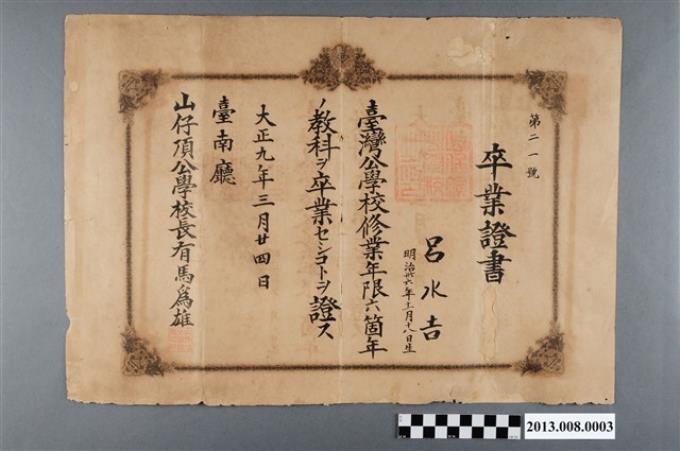 第二一號
卒業證書
呂水吉
明治卅六年十一月十八日生
臺灣公學校修業年限六箇年
ノ教科ヲ卒業セシコトヲ證ス
大正九年三月廿四日
臺南廳
山仔頂公學校長有馬爲雄
2013.008.0003